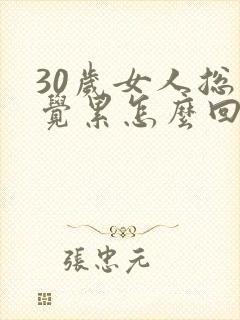 30歲女人總
覺累怎麼回
張忠元